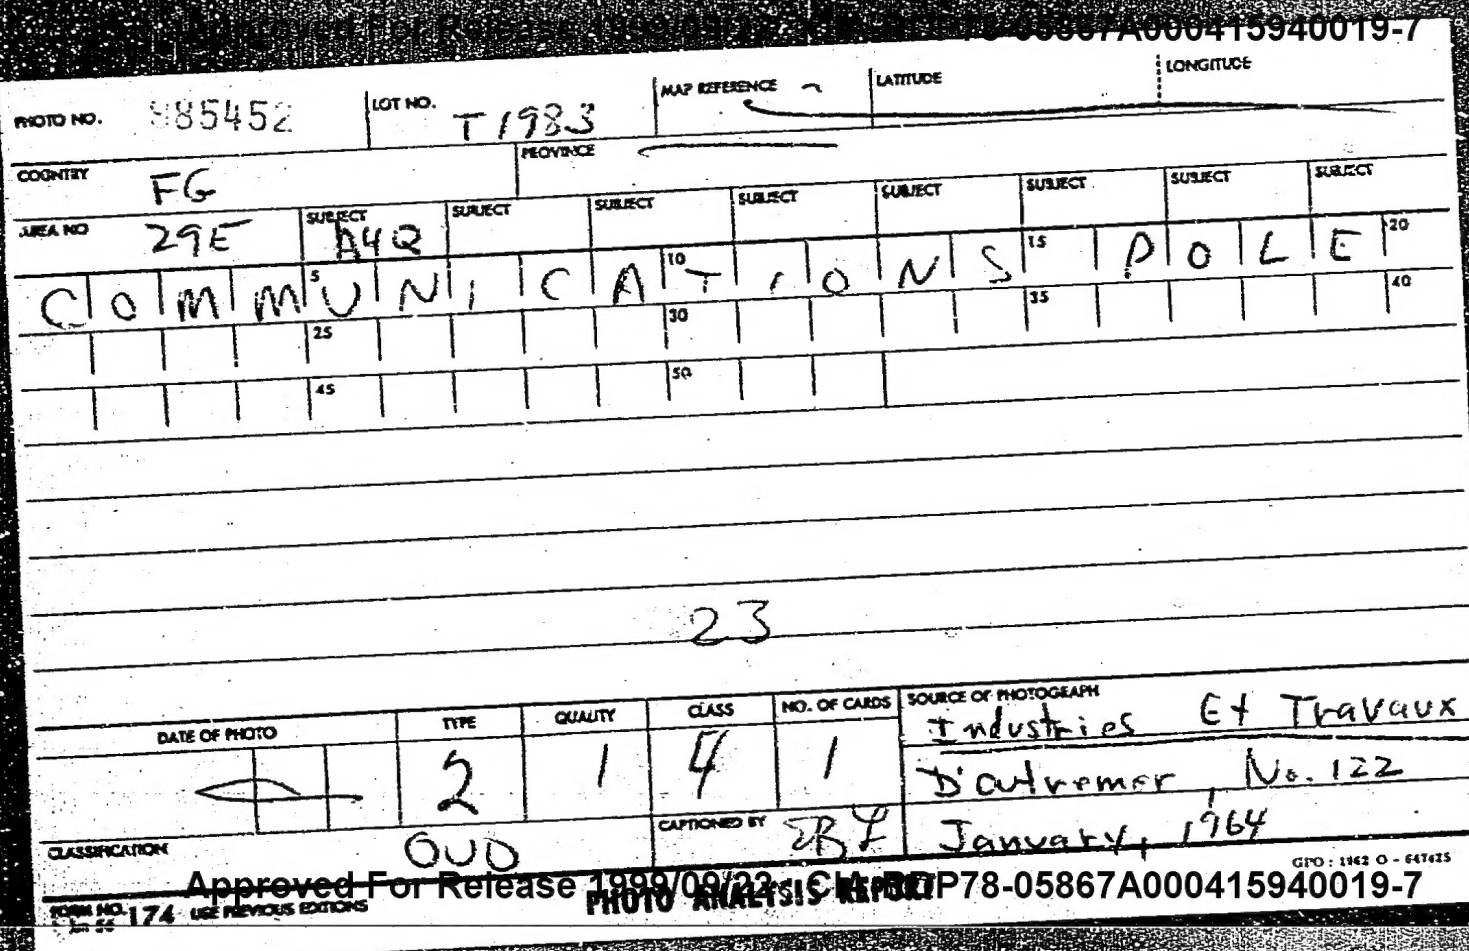 Approved For Release 1999/09/22 : CIA-RDP78-05867A000415940019-7
PHOTO NO. 985452 LOT NO. T1983 MAP REFERENCE LATITUDE LONGITUDE
COUNTRY FG PROVINCE
AREA NO 29E SUBJECT A4Q SUBJECT SUBJECT SUBJECT SUBJECT SUBJECT SUBJECT SUBJECT
COMMUNICATIONS POLE 5 10 15 20
25 30 35 40
45 50
23
DATE OF PHOTO TYPE QUALITY CLASS NO. OF CARDS SOURCE OF PHOTOGRAPH
2 1 4 1 Industries Et Travaux
D'outremer, No. 122
CLASSIFICATION OUO CAPTIONED BY January, 1964
GPO : 1962 O - 647625
Approved For Release 1999/09/22 : CIA-RDP78-05867A000415940019-7
FORM NO. 174 USE PREVIOUS EDITIONS PHOTO ANALYSIS REPORT